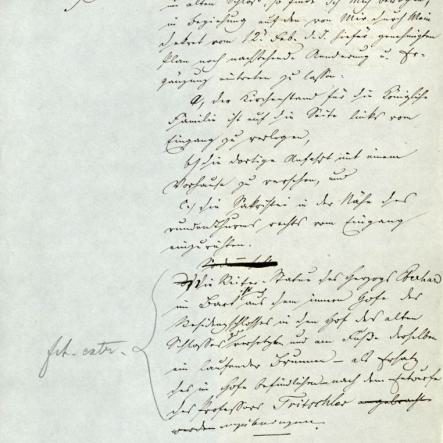 im alten Schloß, so finde Ich Mich bewogen,
in Beziehung auf den von Mir durch Mein
Dekret vom 12. Feb. d. J. hiefür genehmigten
Plan noch nachstehende Aenderung u. Er-
gänzung eintreten zu lassen:
a, der Kirchenstand für die Königliche
Familie ist auf die Seite links vom
Eingang zu verlegen,
b, die dortige Anfahrt mit einem
Vorhause zu versehen, und
c, die Sakristei in der Nähe des
runden Thurms rechts vom Eingang
einzurichten.
Die Reiter-Statue des Herzogs Eberhard
im Bart aus dem innern Hofe des
Residenzschlosses in den Hof des alten
Schlosses versetzt und am Fuße derselben
ein laufender Brunnen – als Ersatz
des im Hofe befindlichen – nach dem Entwurfe
des Professors Fritschler angebracht
werden
fet. extr.